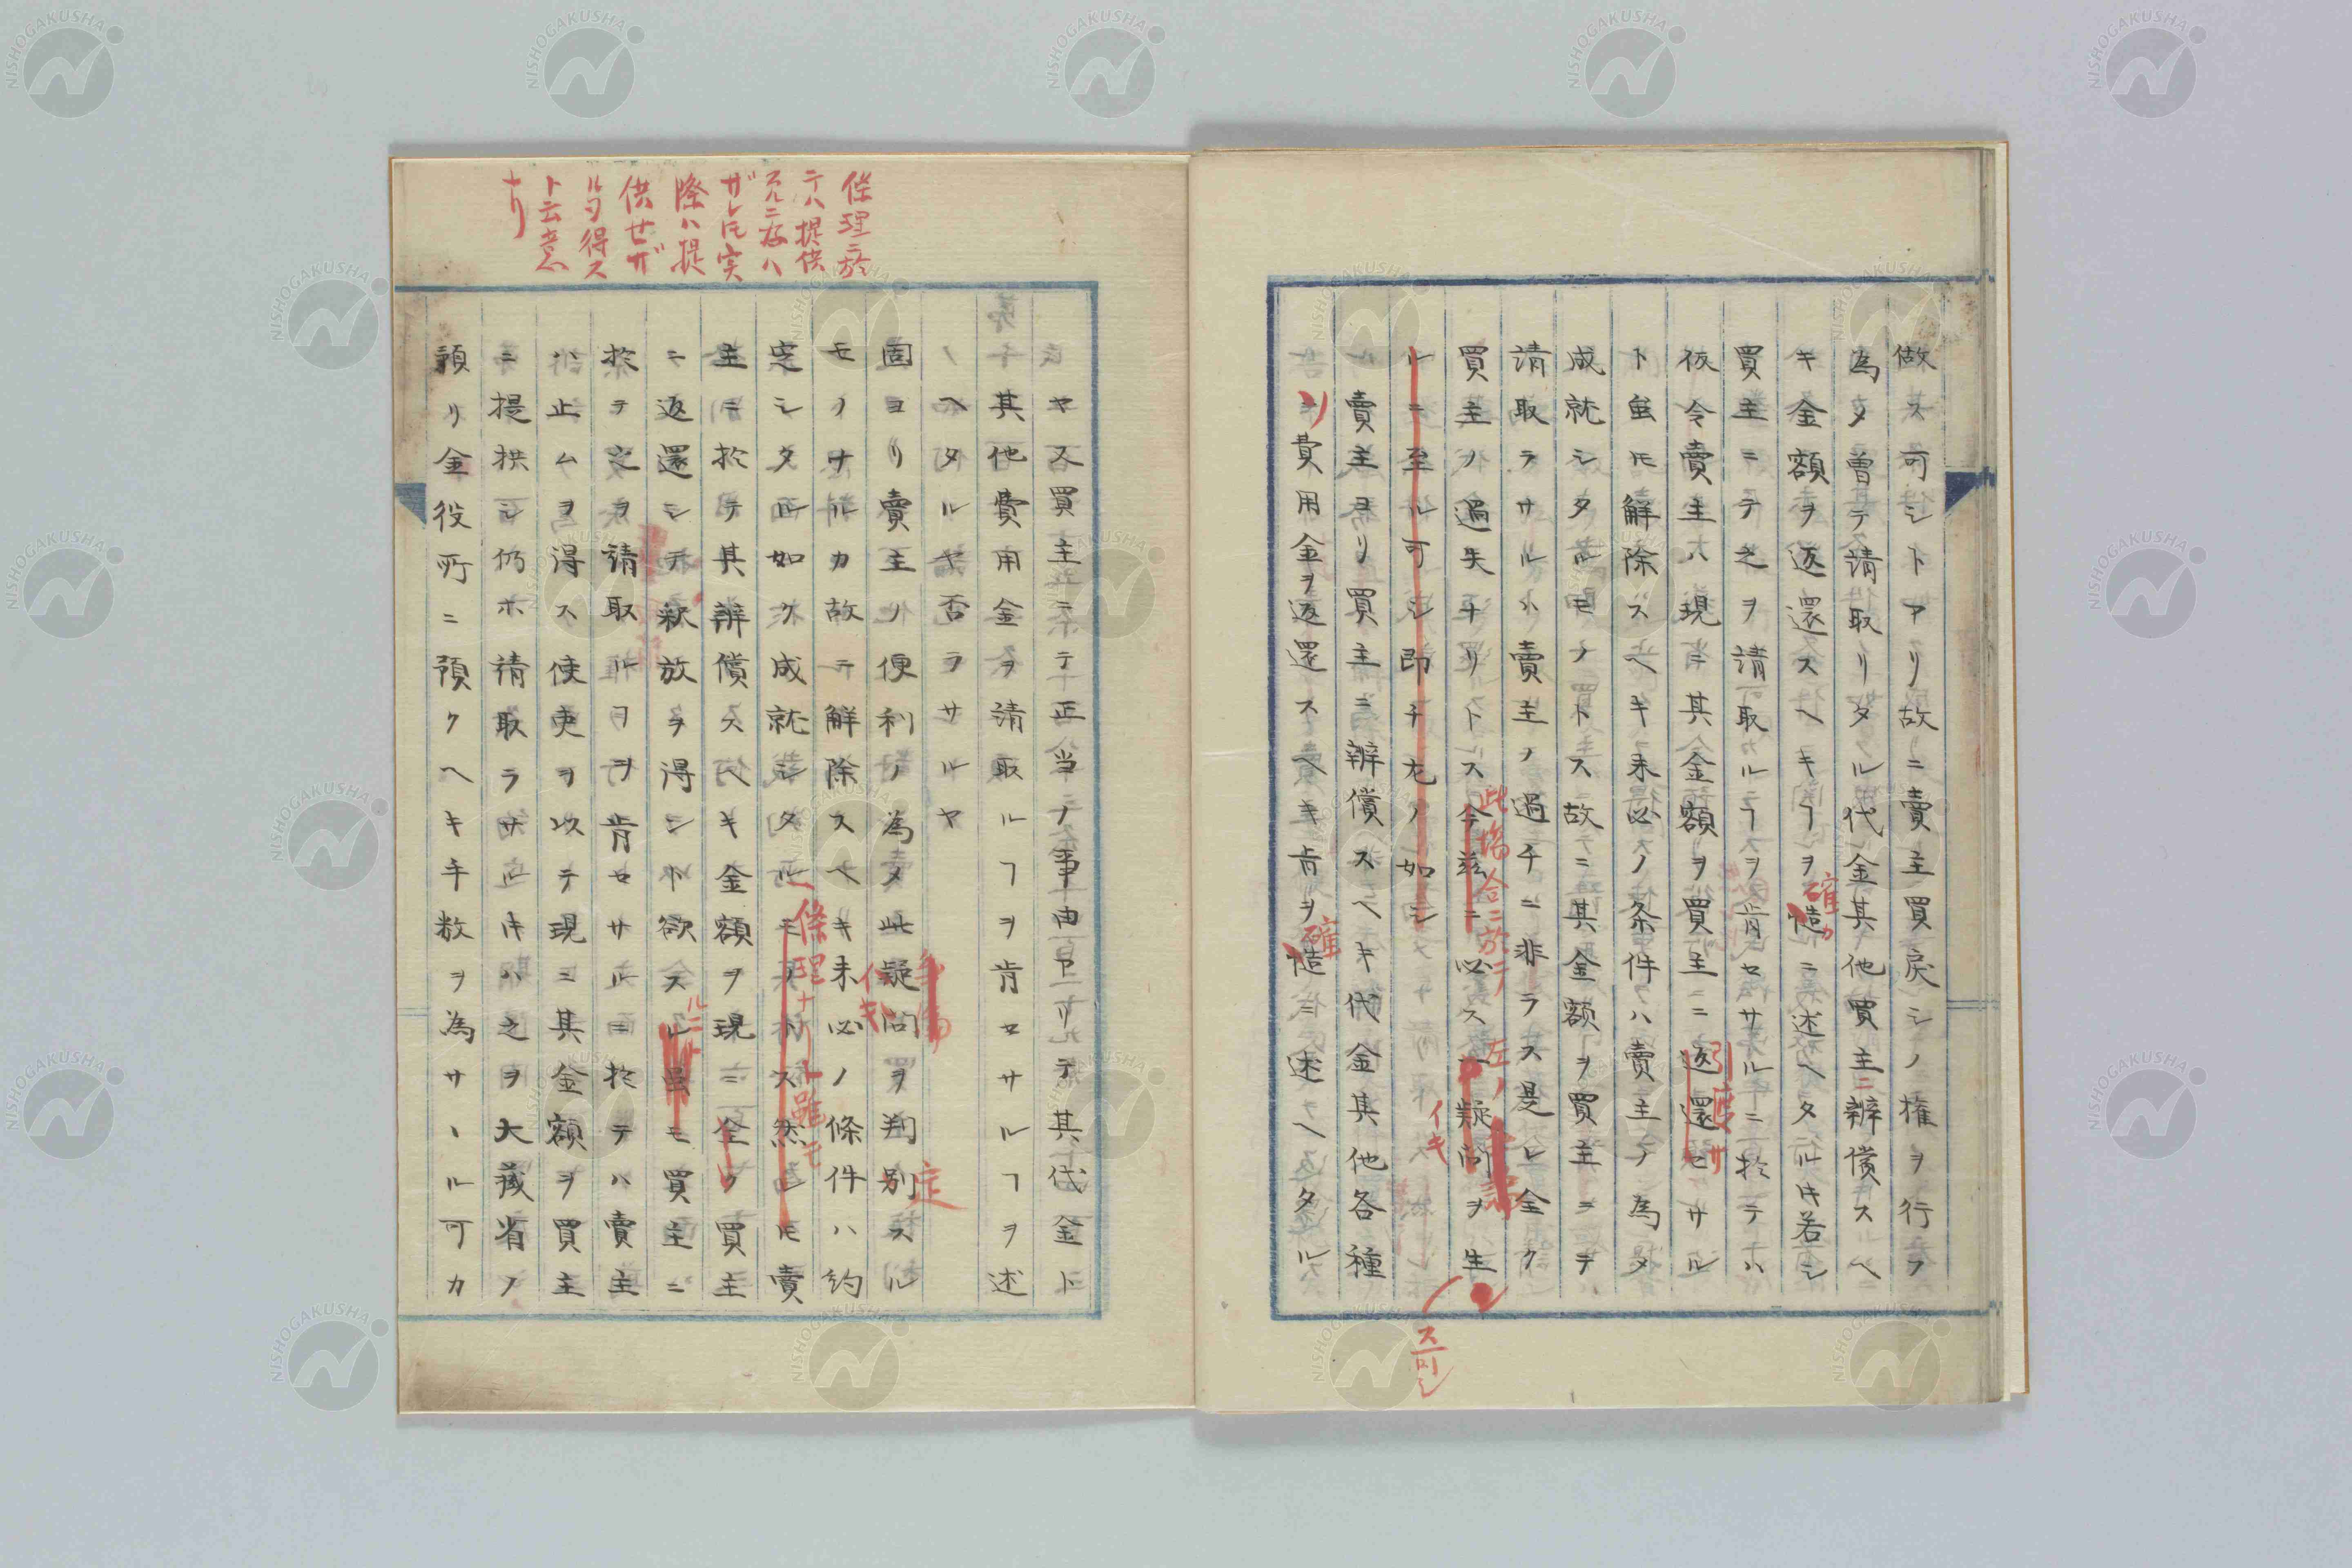 做ス可シトアリ故ニ賣主買戻シノ権ヲ行フ
為タ曽テ請取リタル代金其他買主ニ辨償スヘ
キ金額ヲ返還スヘキヿヲ慥ニ述ヘタルキ若シ
確カ
買主ニテ之ヲ請取ルヿヲ肯セサルニ於テハ
仮令賣主ハ現ニ其金額ヲ買主ニ返還セサル
引渡サ
ト虽𪜈解除スヘキ未必ノ条件ハ賣主ノ為タ
成就シタルモノトス故ニ其金額ヲ買主ニテ
請取ラサルハ賣主ノ過チニ非ラス是レ全ク
買主ノ過失ナリトス今茲ニ必ス疑問ヲ生
此場合ニ於テ
左ノ
ルニ至ル可シ即チ左ノ如シ
イキ
賣主ヨリ買主ニ辨償スヘキ代金其他各種
ノ費用金ヲ返還スヘキ旨ヲ慥ニ述ヘタル
確
ヤ又買主ニテ正当ノ事由アリテ其代金ト
其他費用金ヲ請取ルヿヲ肯セサルヿヲ述
ヘタルヤ否ラサルヤ
固ヨリ賣主ノ便利ノ為タ此疑問ヲ判別スル
定
モノナルカ故ニ解除スヘキ未必ノ條件ハ約
定シタル如ク成就シタルモノトス然レ𪜈賣
條理ナリト雖モ
主ニ於テ其辨償スヘキ金額ヲ現ニ全ク買主
ニ返還シテ釈放ヲ得ント欲スル虽モ買主ニ
ルニ
於テ之ヲ請取ルヿヲ肯セサルニ於テハ賣主
ハ止ムヲ得ス使吏ヲ以テ現ニ其金額ヲ買主
ニ提拱シ仍ホ請取ラサルキハ之ヲ大藏省ノ
預リ金役所ニ預クヘキ手数ヲ為サヽル可カ
條理ニ於
テハ提供
スルニ及ハ
ザレ𪜈実
際ハ提
供セザ
ルヲ得ス
ト云意
ナリ